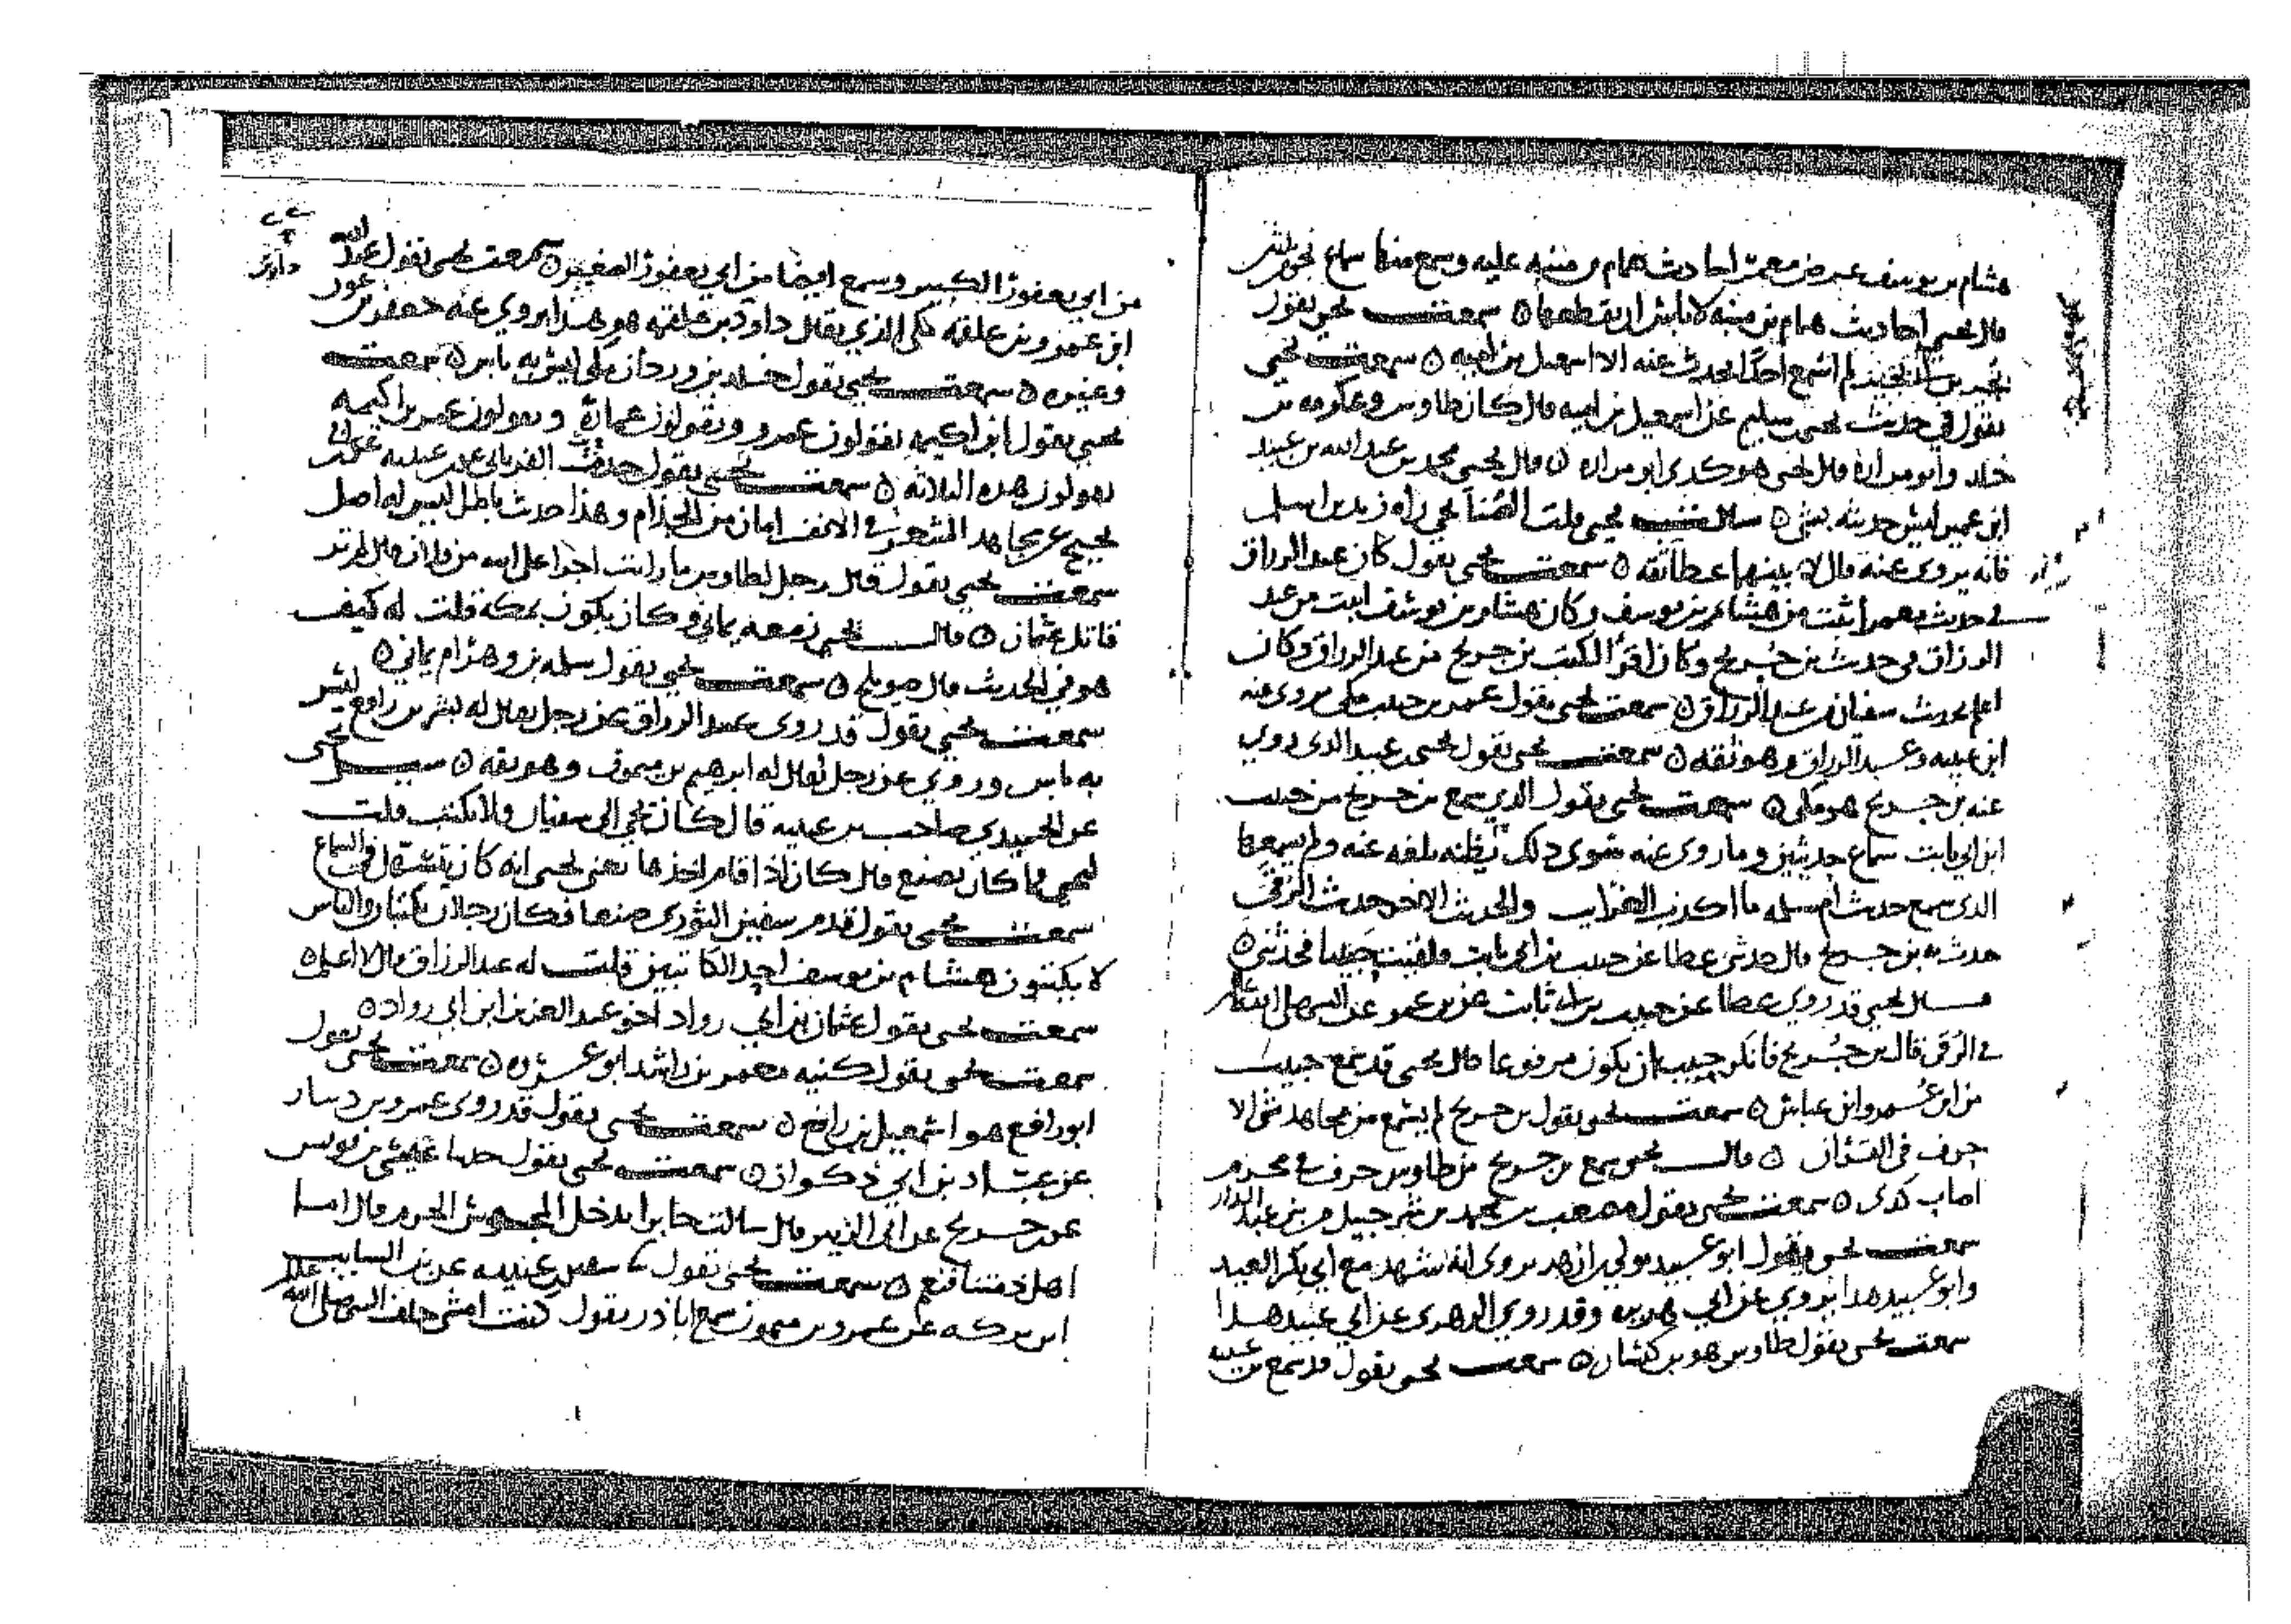 هشام بن يوسف عرض معمر احاديث همام بن منبه عليه وسمع منها سماع نحو
قال يحيى احاديث همام بن منبه لا باس ان يقطعها ه سمعت يحيى يقول
لم اسمع احدا يحدث عنه الا اسمعيل بن اميه ه سمعت يحيى
يقول في حديث يحيى بن سليم عن اسمعيل بن اميه قال كان طاوس وعكرمه بن
خلد وابو مراره قال يحيى هو كدى ابو مراره ه قال يحيى محمد بن عبد الله بن عبيد
ابن عمير ليس حديثه بشي ه سالت يحيى قلت الصنابحي راه زيد بن اسلم
فانه يروى عنه قال لا بينهما عطا ثقه ه سمعت يحيى يقول كان عبد الرزاق
في حديث معمر اثبت من هشام بن يوسف وكان هشام بن يوسف اثبت من عبد
الرزاق في حديث بن جريج وكان اقرا لكتب بن جريج من عبد الرزاق وكان
اعلم بحديث سفيان من عبد الرزاق ه سمعت يحيى يقول عمر بن حبيب مكى يروى عنه
ابن عيينه وعبد الرزاق وهو ثقه ه سمعت يحيى يقول يحيى بن عبيد الذى روى
عنه بن جريج هو مكى ه سمعت يحيى يقول الذي سمع بن جريج من حبيب
ابن ابي ثابت سماع حديثين وما روى عنه سوى ذلك نظنه بلغه عنه ولم يسمعها
الذى سمع حديث ام سلمه ما اكذب الغرايب والحديث الاخر حديث الرقى
حدث به بن جريج قال حدثنى عطا عن حبيب بن ابى ثابت فلقيت حبيبا فحدثنى ه
قال يحيى قد روى عطا عن حبيب بن ابى ثابت عن بن عمر عن النبى صلى الله عليه
في الرقى قال بن جريج فانكر حبيب ان يكون مرفوعا قال يحيى قد سمع حبيب
من ابن عمر وابن عباس ه سمعت يحيى يقول بن جريج لم يسمع من مجاهد شى الا
حرف في القران ه قال يحيى سمع بن جريج من طاوس حرف في محرم
اصاب كدى ه سمعت يحيى يقول مصعب بن محمد بن شرحبيل من بنى عبد الدار
سمعت يحيى يقول ابو عبيد مولى بن ازهر يروى انه شهد مع ابي بكر العيد
وابو عبيد هذا يروي عن ابي هريره وقد روى الزهرى عن ابي عبيد هذا
سمعت يحيى يقول طاوس هو بن كيسان ه سمعت يحيى يقول قد سمع بن عيينه
من ابي يعفور الكبير وسمع ايضا من ابي يعفور الصغير ه سمعت يحيى يقول عبد الله
ابن عمرو بن علقمه مكى الذي يقال داود بن علقمه هو هذا يروي عنه جعفر بن عون
وغيره ه سمعت يحيى يقول خلد بن وردان مكى ليس به باس ه سمعت
يحيى يقول ابن اكيمه يقولون عمرو ويقولون عمارة ويقولون عمر بن اكيمه
يقولون هذه الثلاثه ه سمعت يحيى يقول حدث الفريابى عن بن عيينه عن بن ابي
نجيح عن مجاهد الشعر في الانف امان من الجذام وهذا حديث باطل ليس له اصل
سمعت يحيى يقول قال رجل لطاوس ما رايت اجرا على الله من فلان قال لم تر
قاتل عثمان ه قال يحيى زمعه يماني وكان يكون بمكة قلت له كيف
هو في الحديث قال صويلح ه سمعت يحيى يقول سلمه بن وهرام يماني ه
سمعت يحيى يقول قد روى عبد الرزاق عن رجل يقال له بشر بن رافع ليس
به باس وروى عن رجل يقال له ابرهيم بن ميمون وهو ثقه ه سئل يحيى
عن الحميدي صاحب بن عيينه قال كان يجي الى سفيان ولا يكتب قلت
ليحيى فما كان يصنع قال كان اذا قام اخذها يعنى يحيى انه كان يتسهل في السماع
سمعت يحيى يقول قدم سفين الثورى صنعا فكان رجلان يكتبان والناس
لا يكتبون هشام بن يوسف احد الكاتبين قلت له عبد الرزاق قال لا اعلم ه
سمعت يحيى يقول عثمان بن ابي رواد اخو عبد العزيز ابن ابي رواد ه
سمعت يحيى يقول كنيه معمر بن راشد ابو عروه ه سمعت يحيى يقول
ابو رافع هو اسمعيل بن رافع ه سمعت يحيى يقول قد روى عمرو بن دينار
عن عباد بن ابي ذكوان ه سمعت يحيى يقول حدثنا عيسى بن يونس
عن بن جريج عن ابى الزبير قال سالت جابرا ايدخل المجوس الحرم قال اما
اهل ذمتنا فنعم ه سمعت يحيى يقول نا سفين بن عيينه عن بن السايب
ابن بركه عن عمرو بن ميمون سمع ابا ذر يقول كنت امشى خلف النبى صلى الله عليه